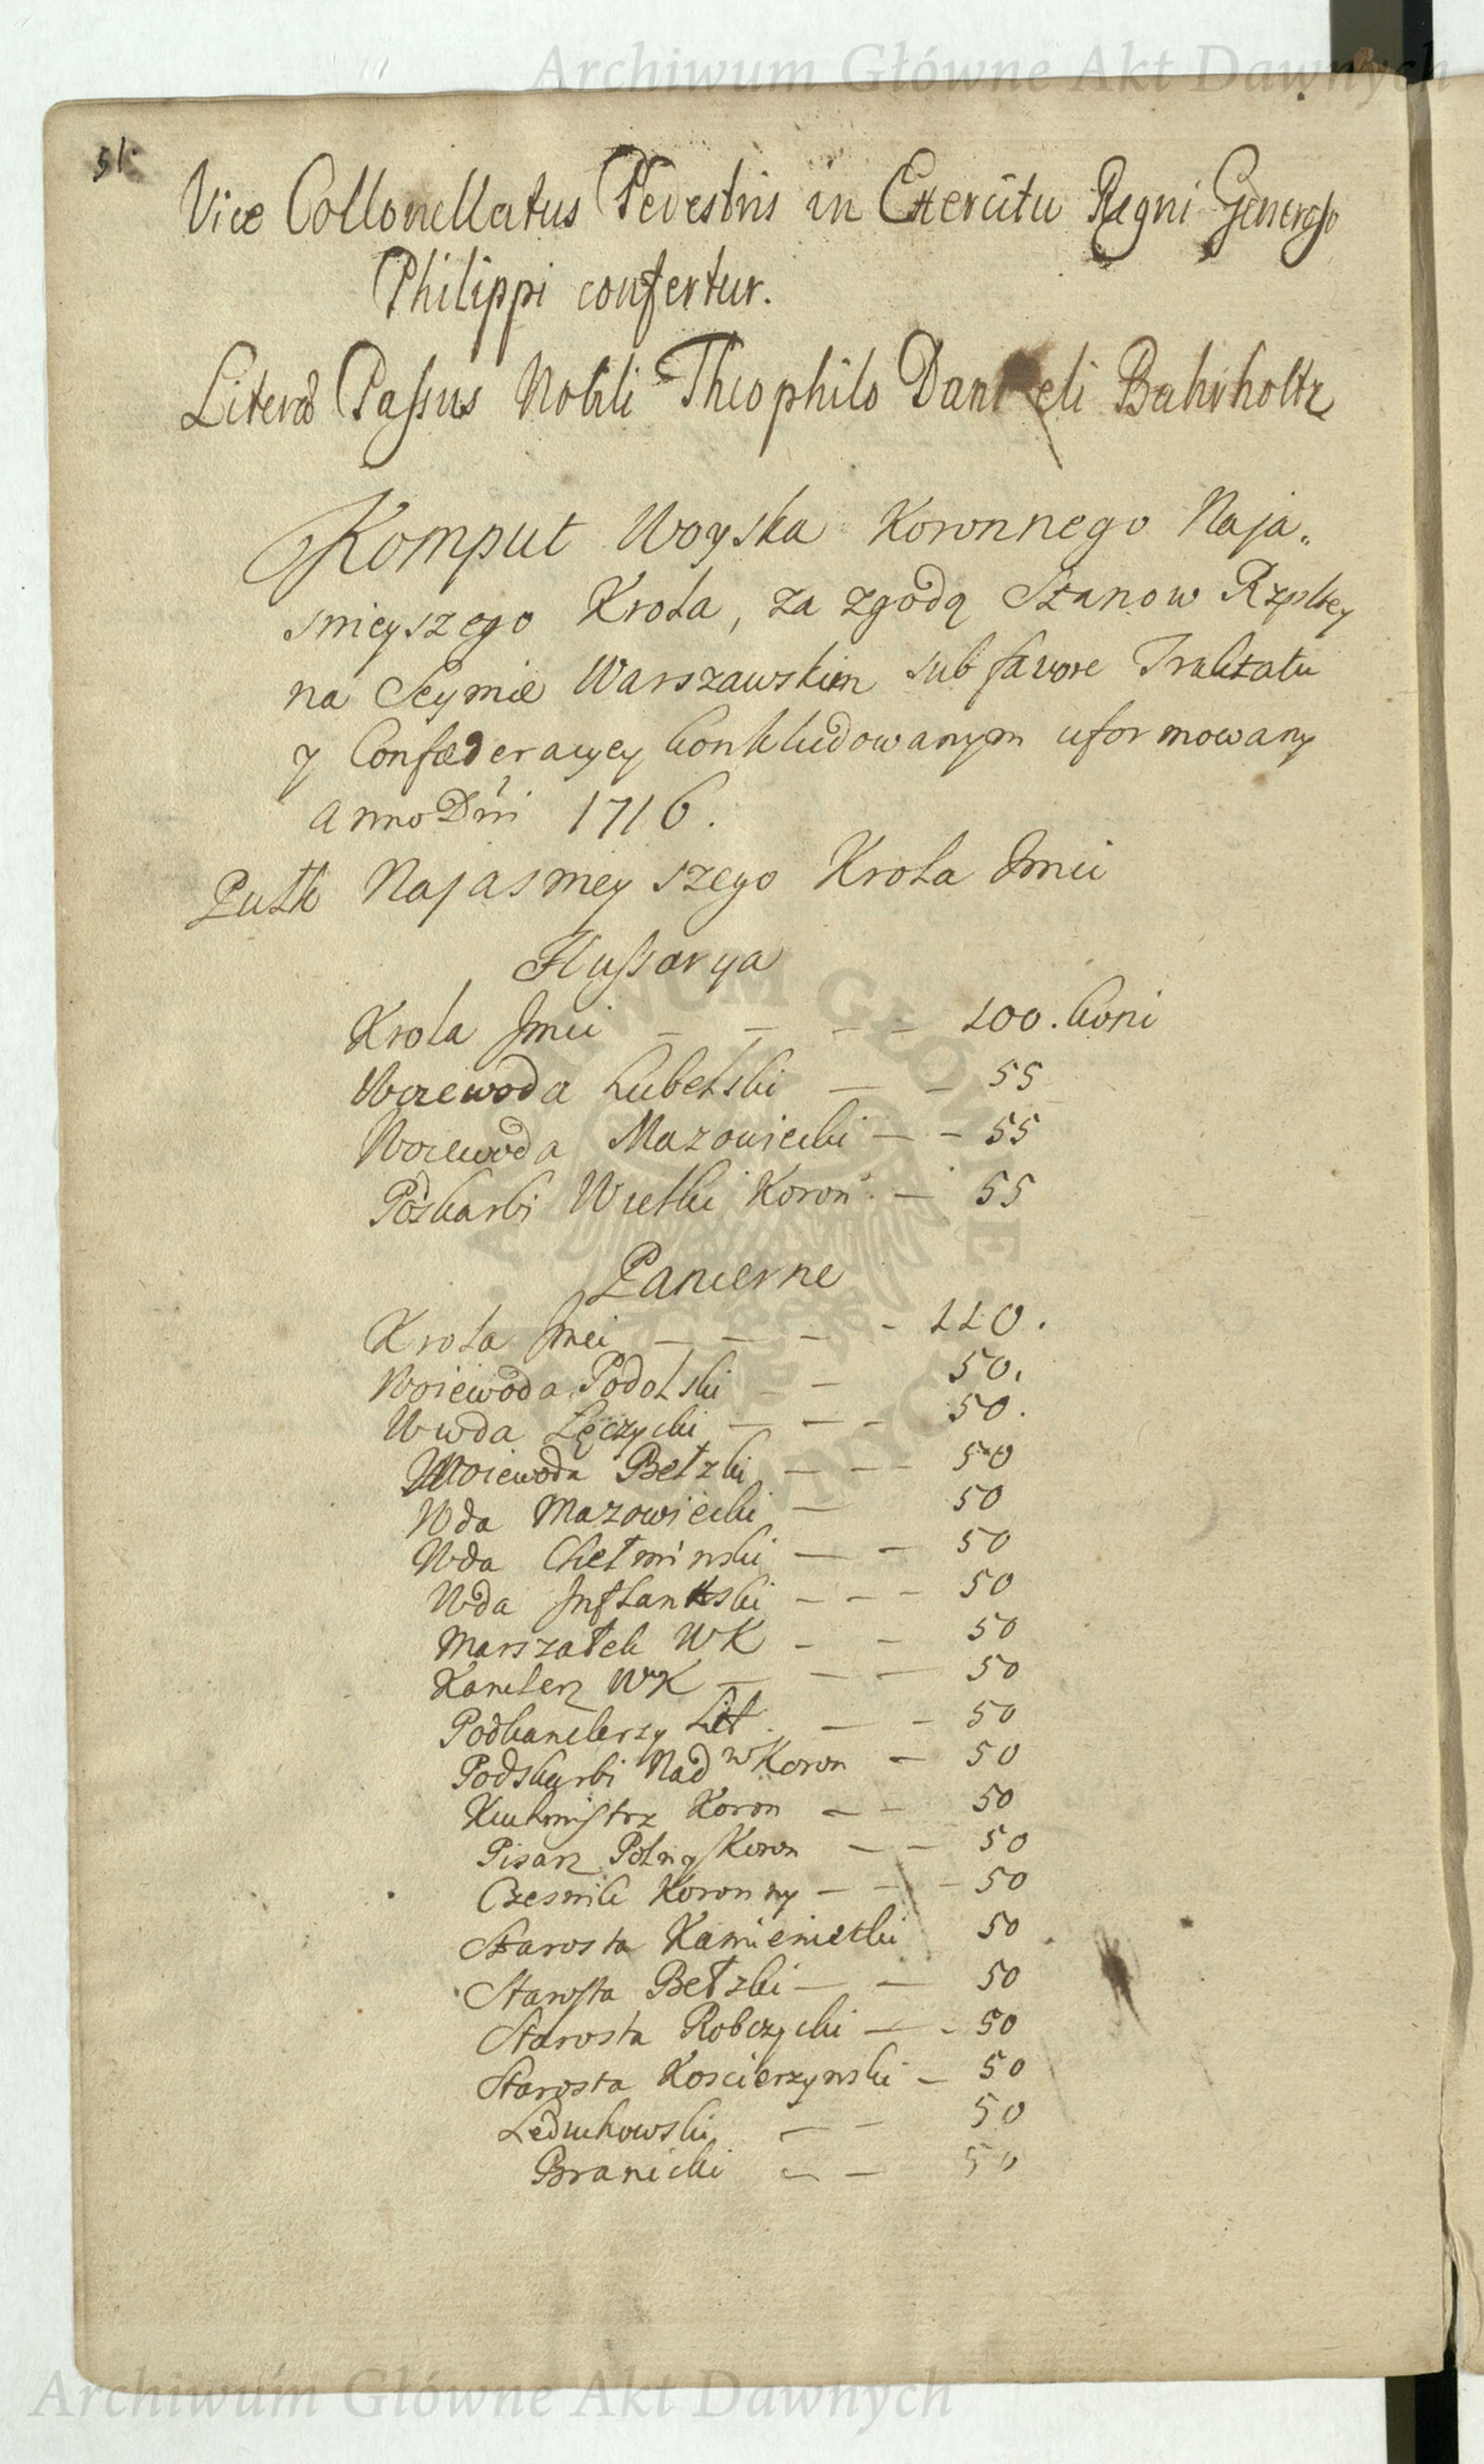 Archiwum Główne Akt Dawnych
51.
Vice Collonellatus Pedestris in Exercitu Regni Generoso
Philippi confertur.
Literæ Paſsus Nobili Theophilo Danieli Bahrholtz
Komput Woyska Koronnego Naja„
snieyszego Krola, za zgodą Stanow Rzpltey
na Seymie Warszawskim sub favore Traktatu
y Confæderacyey konkludowanym uformowany
anno Dńi 1716.
Pułk Najasnieyszego Krola Jmci
Huſsarya
Krola Jmci – – – – 100. koni
Woiewoda Lubelski – – 55
Woiewoda Mazowiecki – – 55
Podskarbi Wielki Koron – 55
Pancerne
Krola Jmci – – – – 110.
Woiewoda Podolski – – 50.
Wwda Łęczycki – – – 50.
Woiewoda Bełzki – – – 50
Wda Mazowiecki – 50
Wda Chełminski – – 50
Wda Inflantski – – – 50
Marszałek WK – – 50
Kanclerz WK – – – 50
Podkanclerzy Lit. – – 50
Podskarbi Nadw Koron – 50
Kuchmiſtrz Koron – – 50
Pisarz Polny Koron – – 50
Czesnik Koronny – – – 50
Starosta Kamieniecki 50
Staroſta Bełzki – – 50
Starosta Robczycki – – 50
Starosta Koscierzynski – 50
Leduchowski – – 50
Branicki – – 50
ARCHIWUM GŁÓWNE AKT DAWNYCH
Archiwum Główne Akt Dawnych